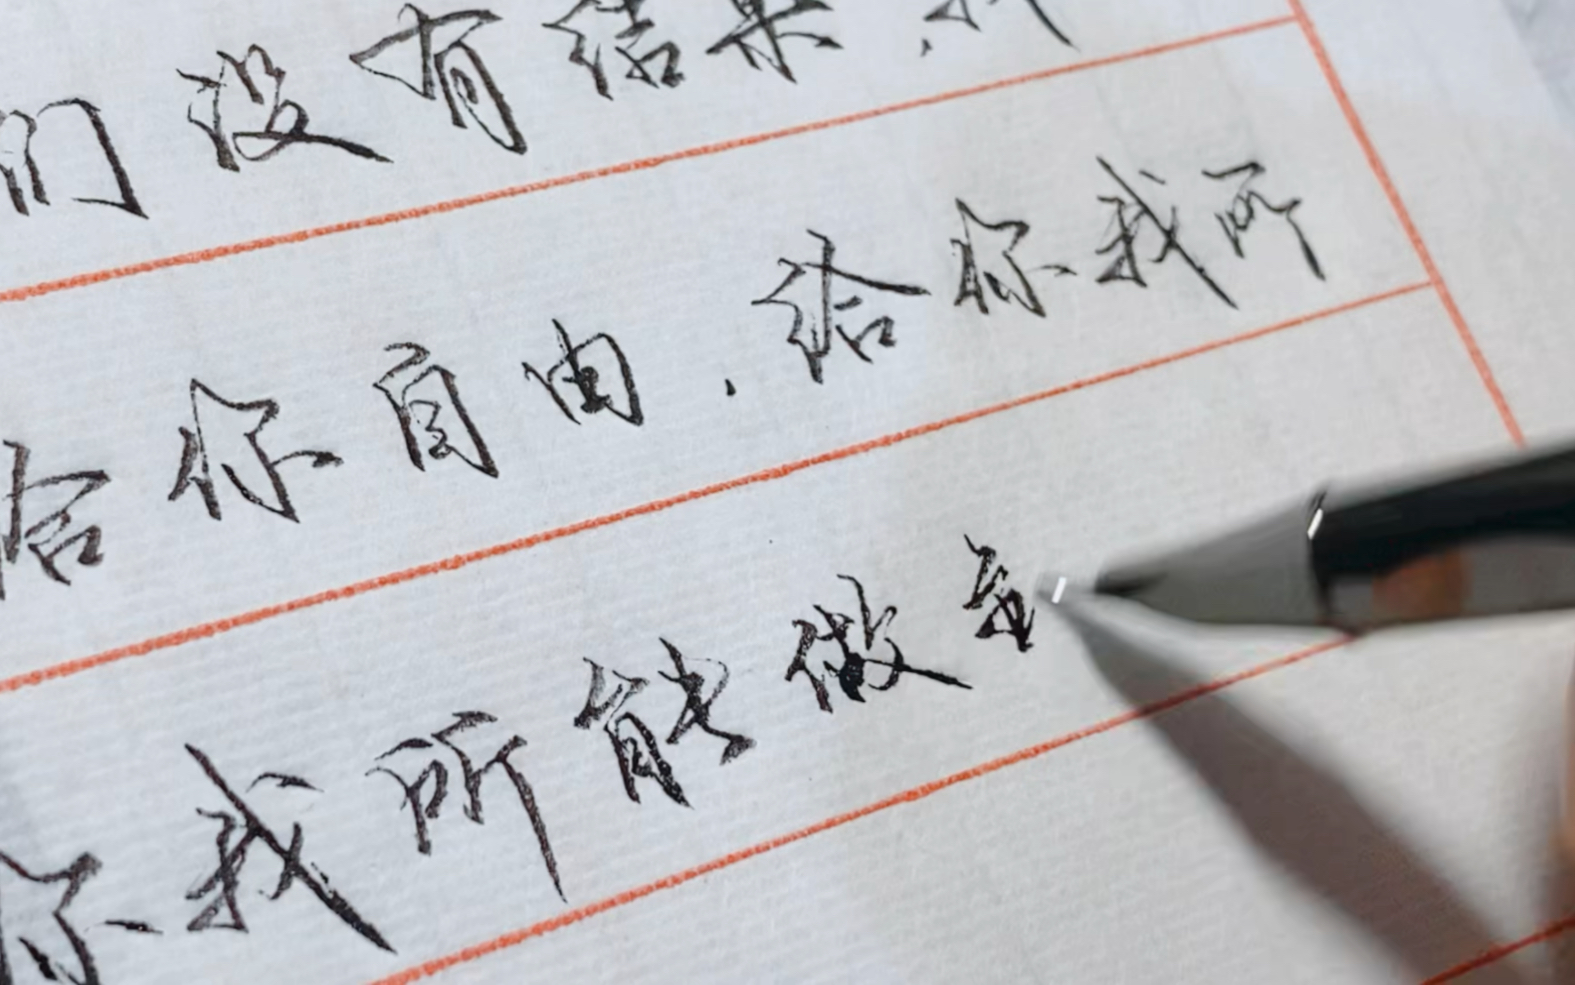 们没有结果,我
给你自由.给你我所
你我所能做到